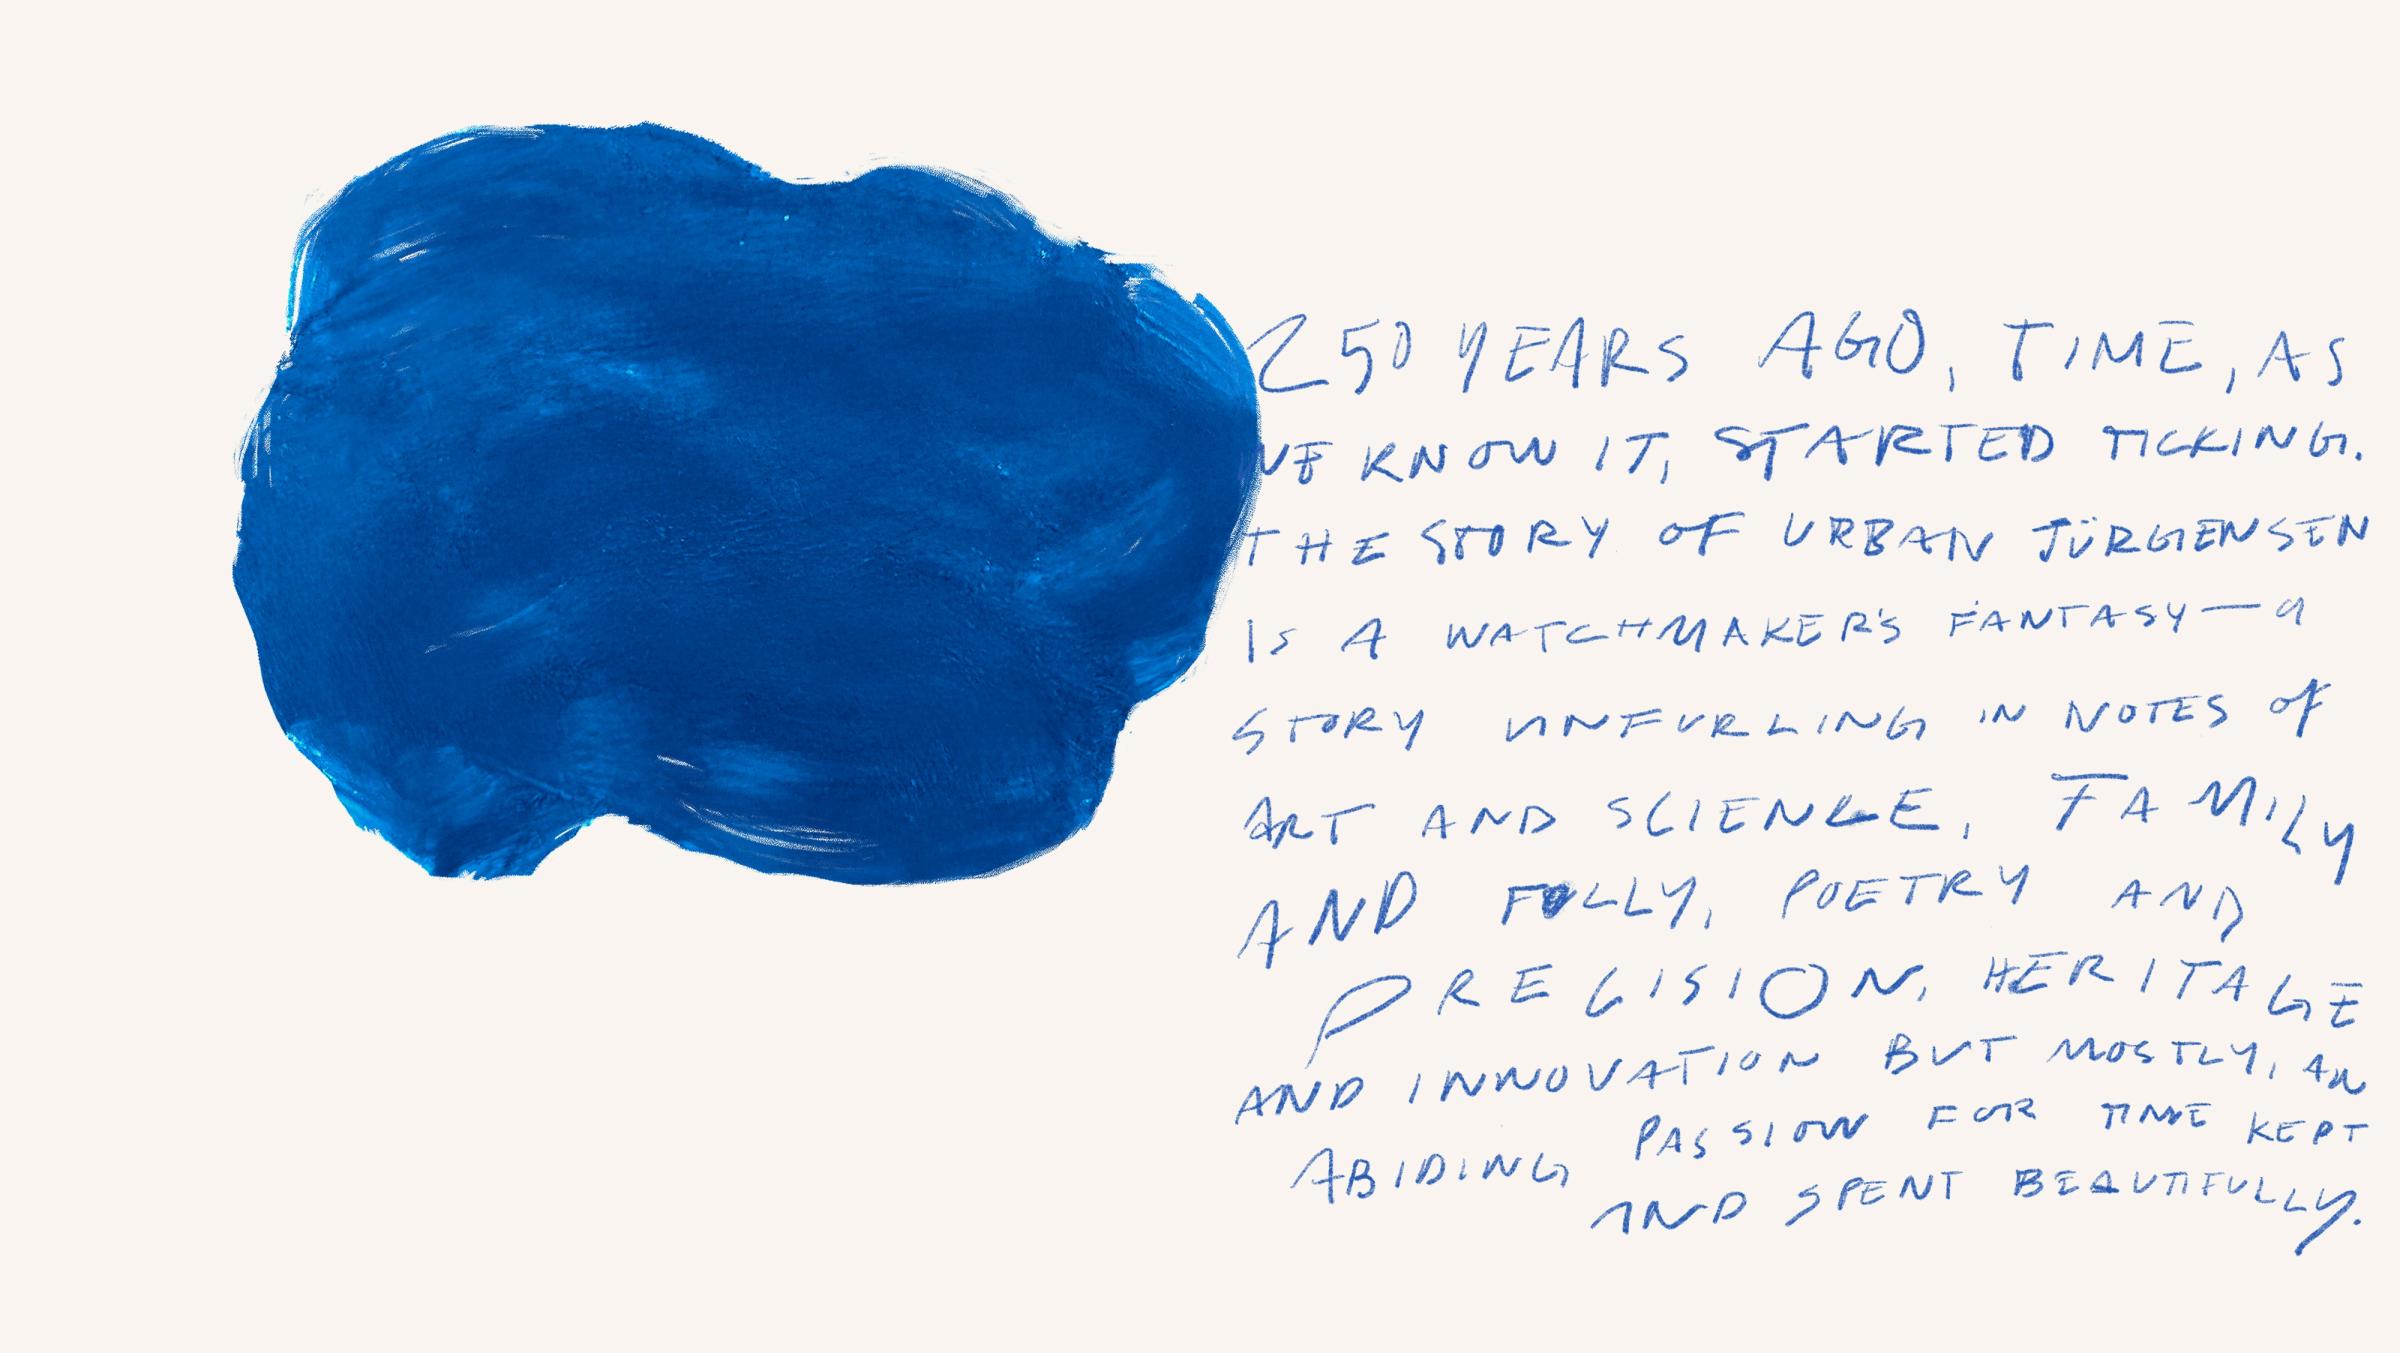 250 YEARS AGO, TIME, AS
WE KNOW IT, STARTED TICKING.
THE STORY OF URBAN JÜRGENSEN
IS A WATCHMAKER'S FANTASY—a
STORY UNFURLING IN NOTES OF
ART AND SCIENCE, FAMILY
AND FOLLY, POETRY AND
PRECISION, HERITAGE
AND INNOVATION BUT MOSTLY, AN
ABIDING PASSION FOR TIME KEPT
AND SPENT BEAUTIFULLY.